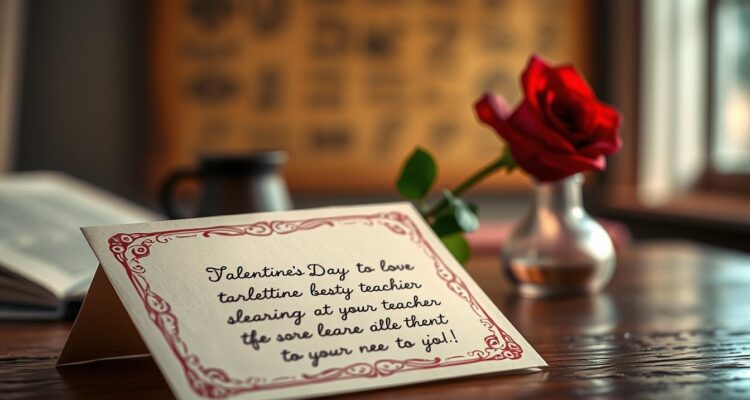 Talentine's Day to love
tarlettine besty teachier
slearing at your teacher
tfe sore leare aille thent
to your nee to yjol.!